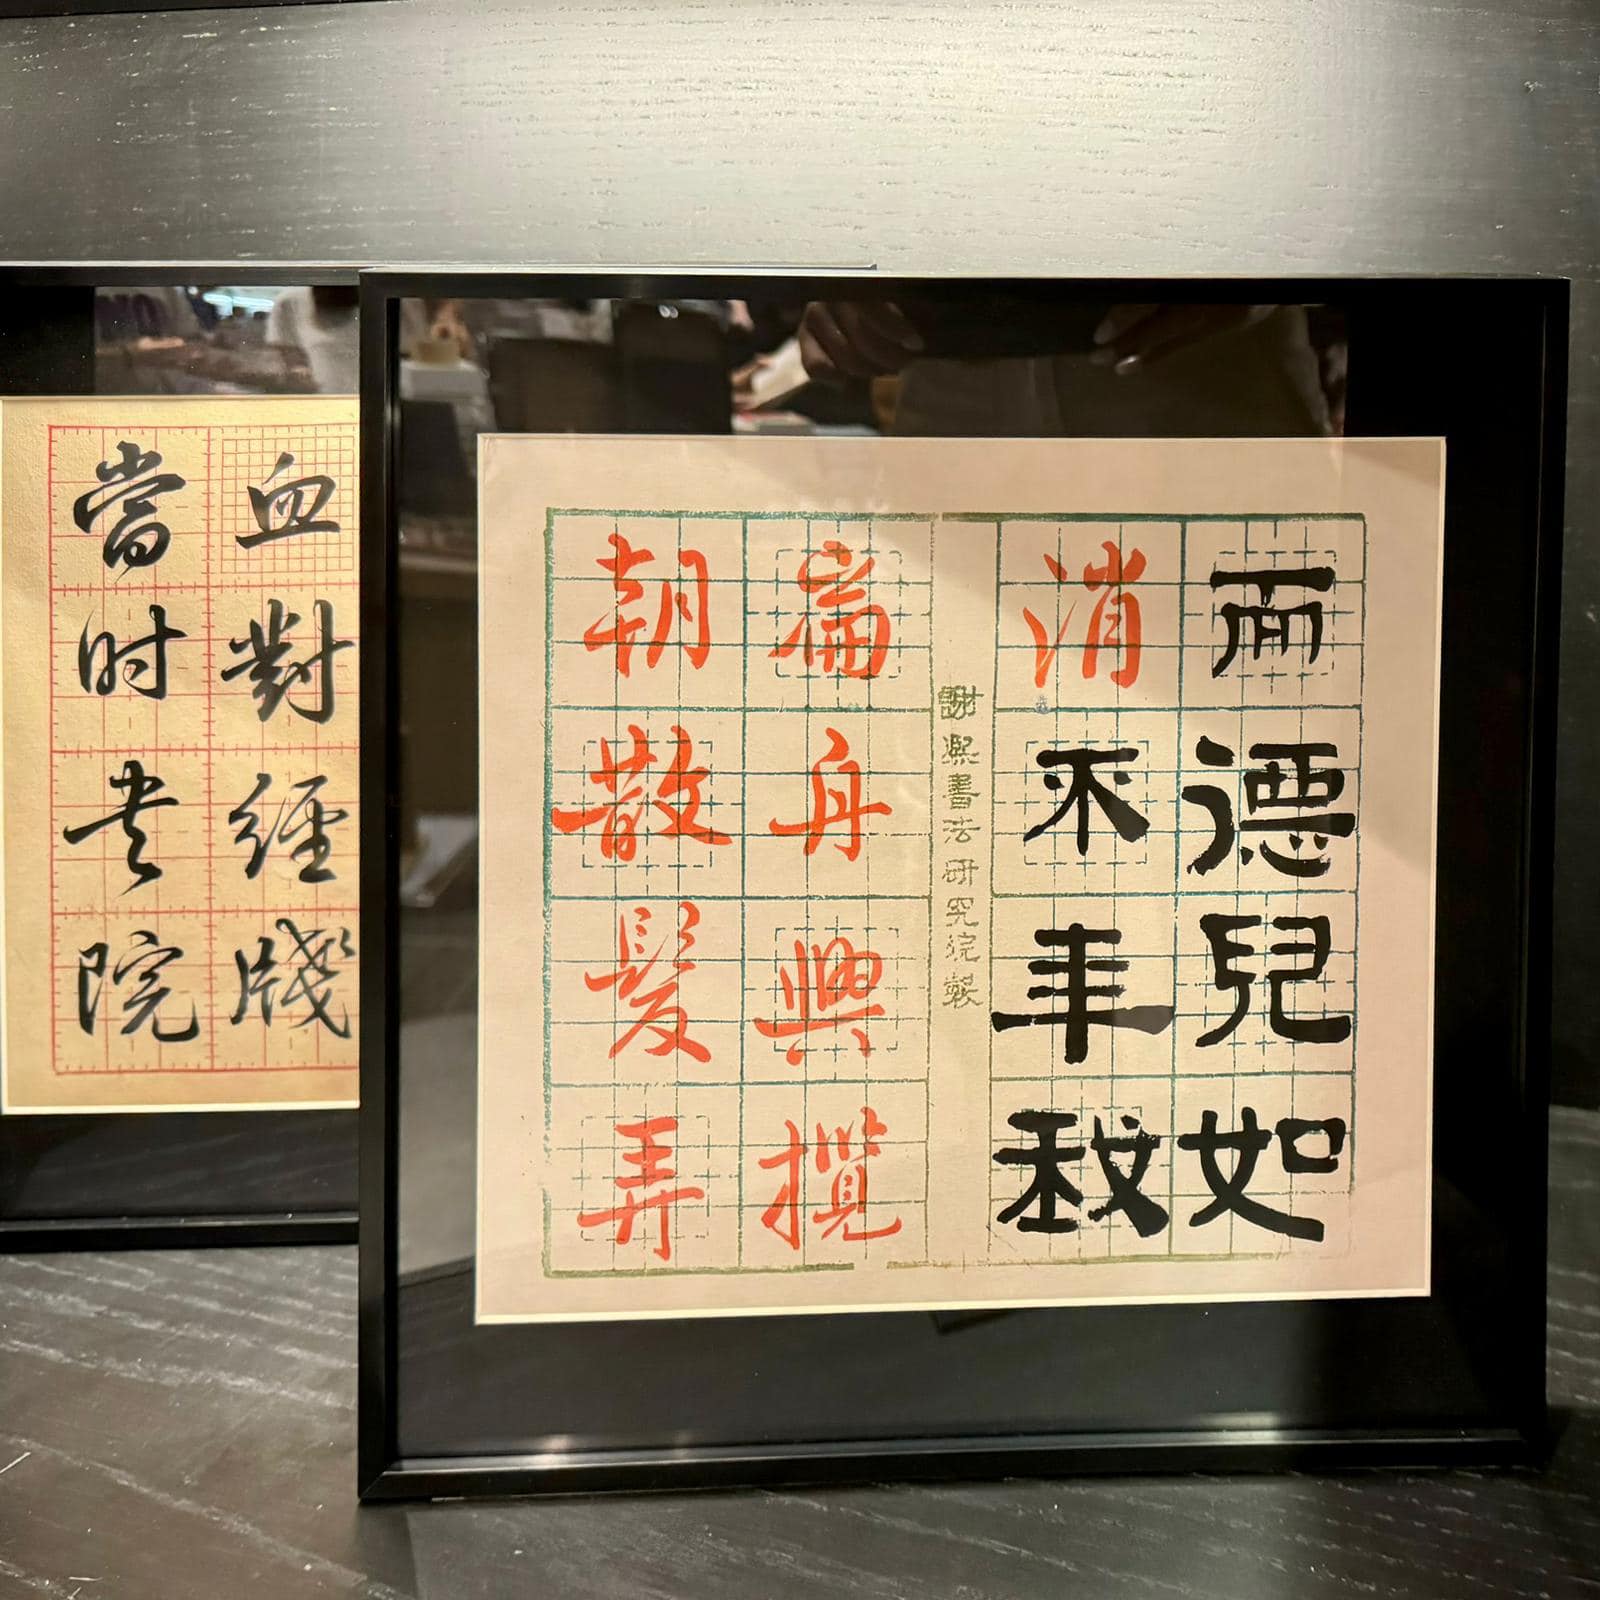 而德兒如
消不年
謝熙書法研究院製
扁舟興攬
朝散髮弄
血對經牋
當时院